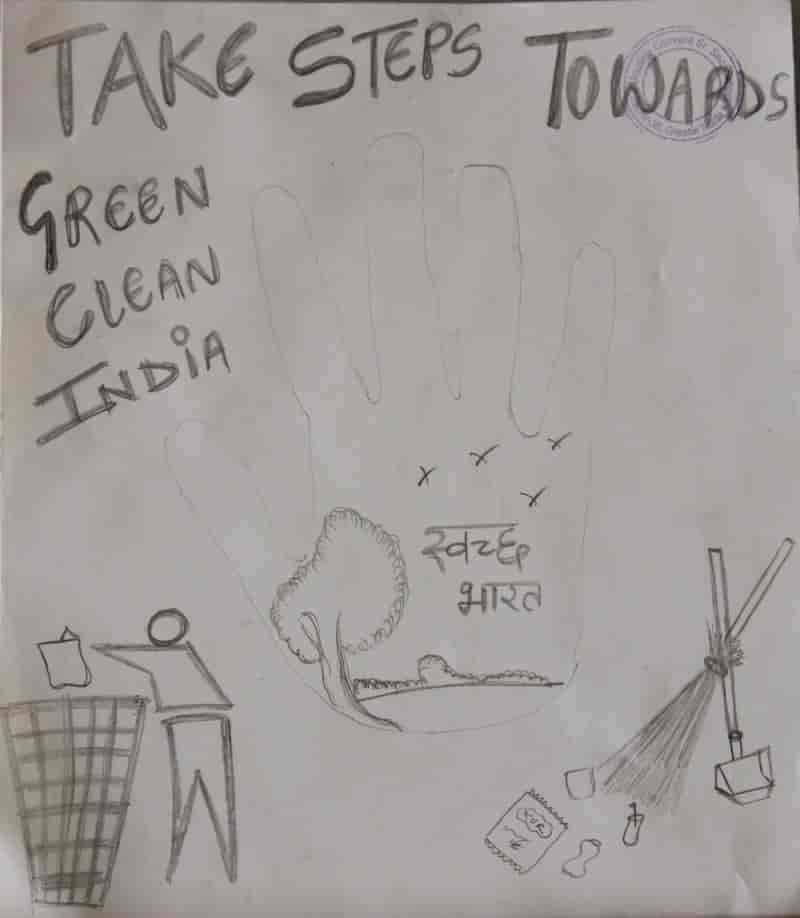 TAKE STEPS TOWARDS
GREEN
CLEAN
INDIA
स्वच्छ
भारत